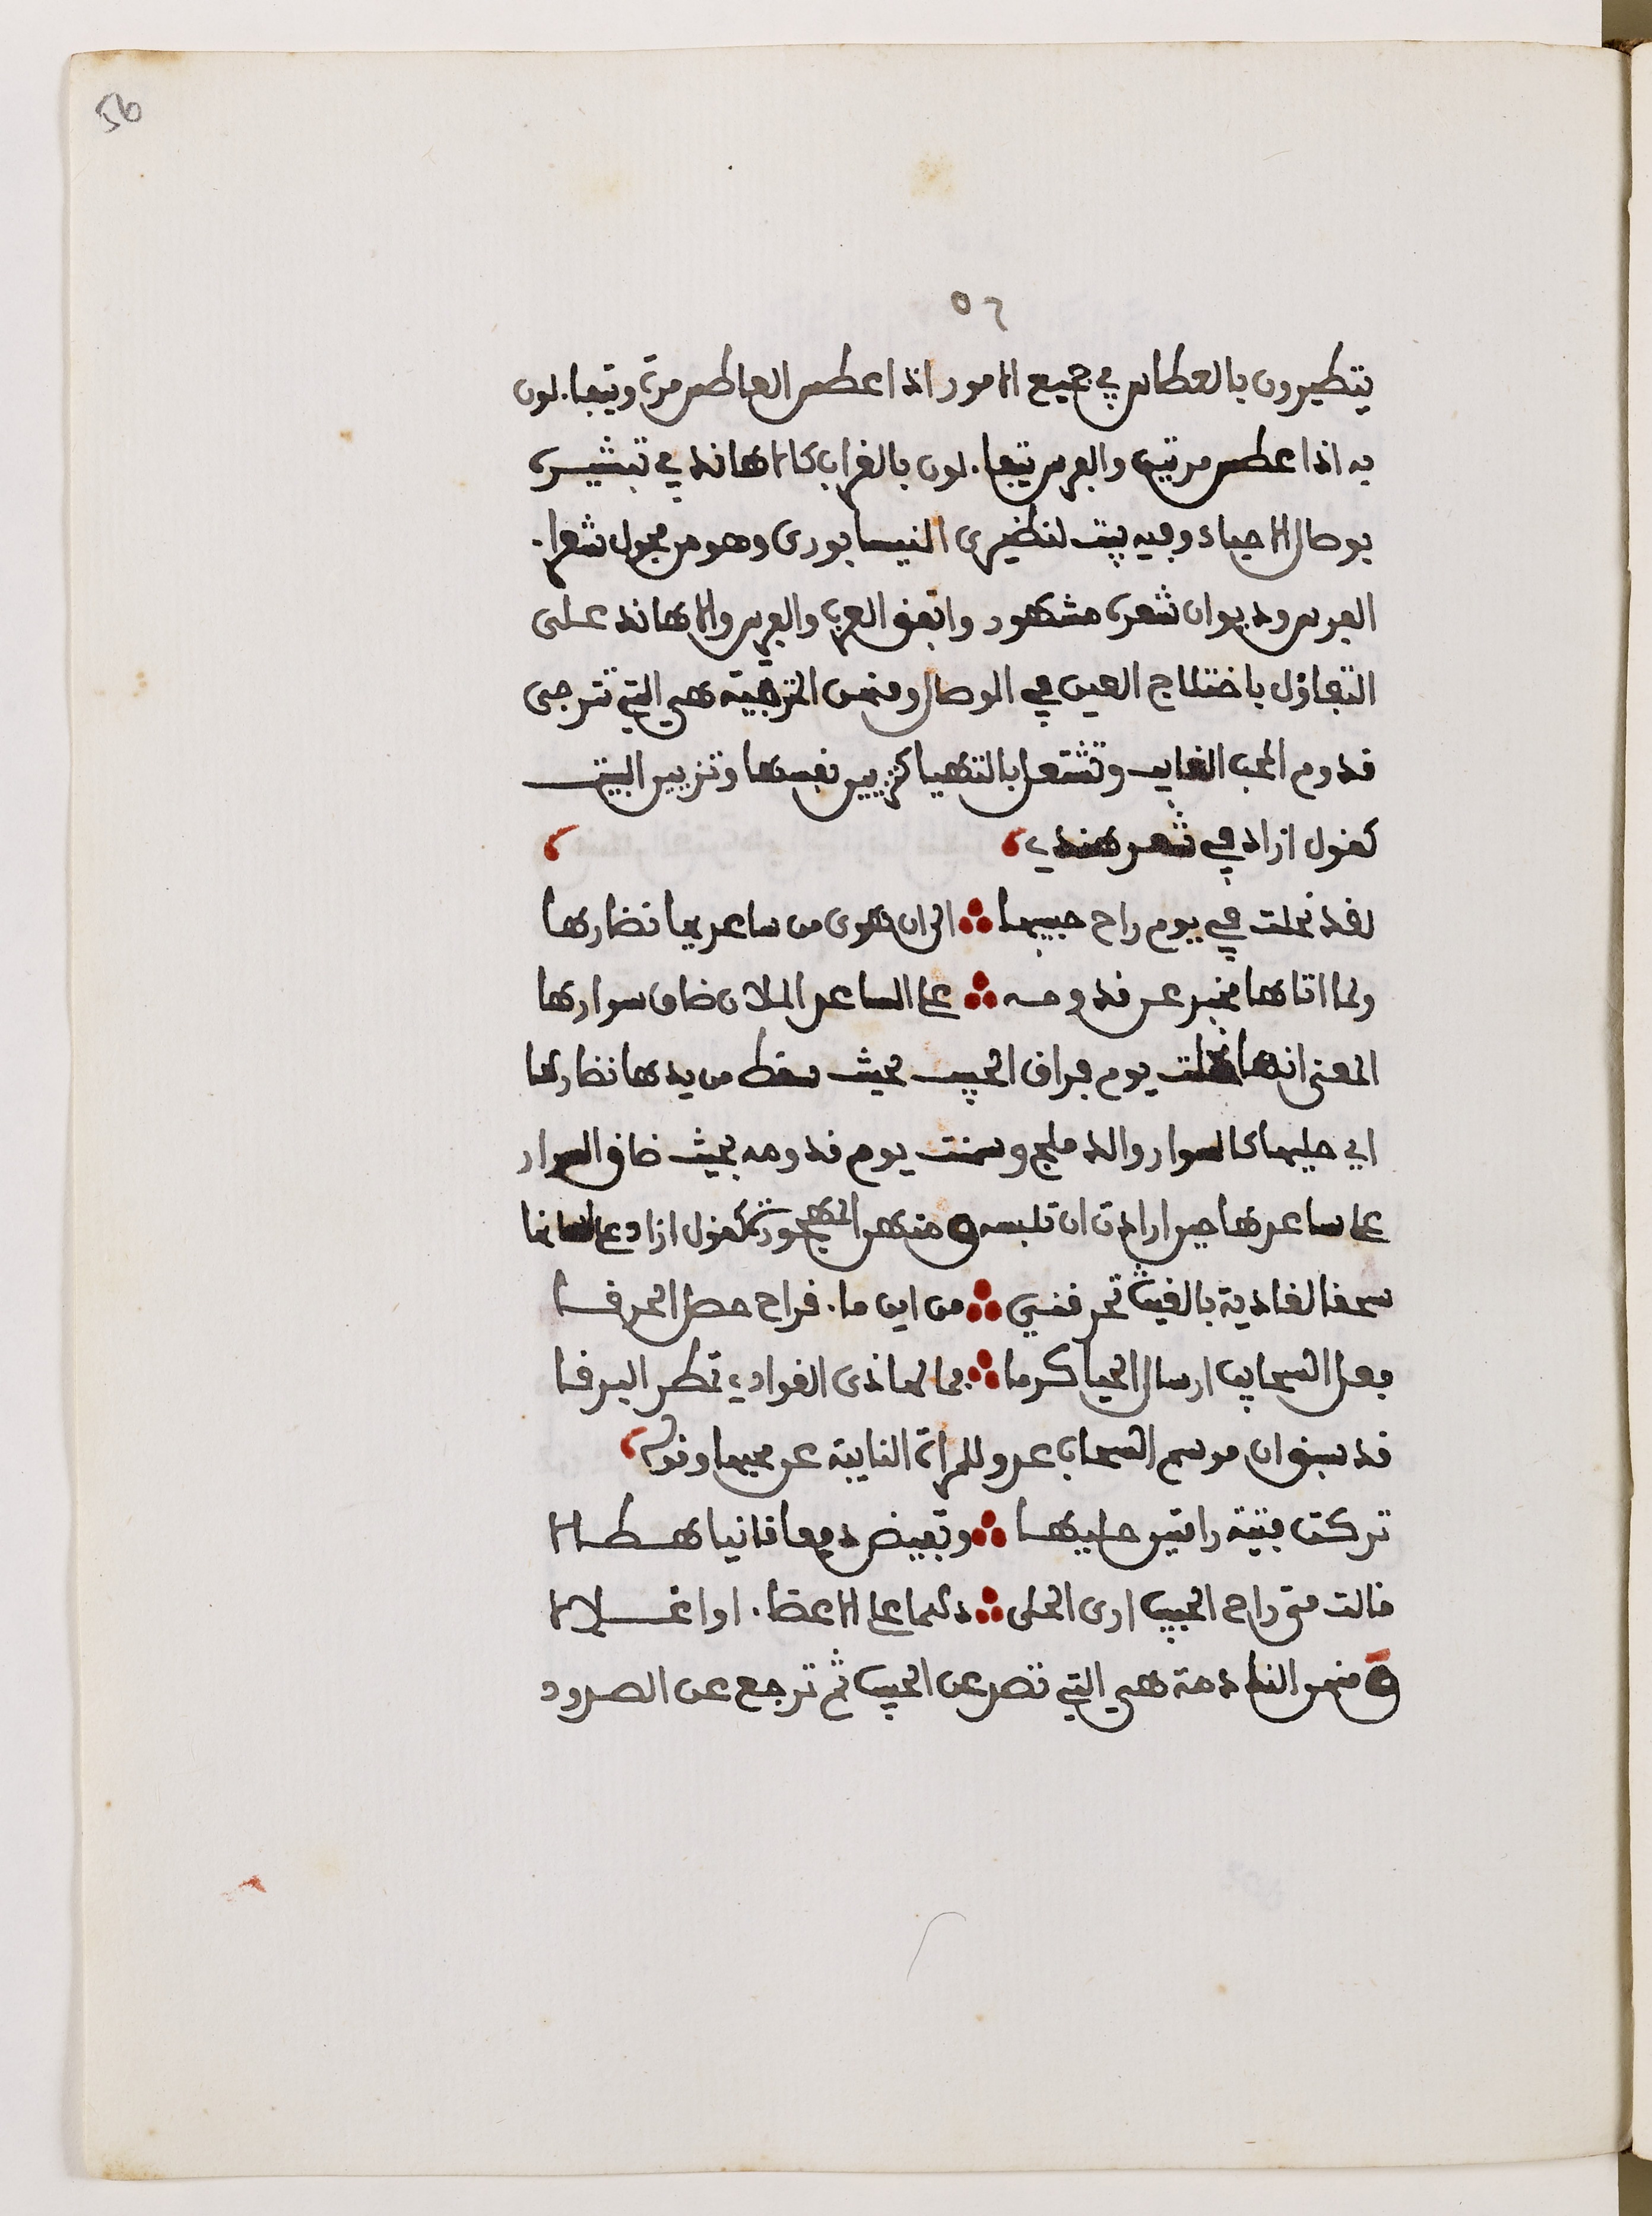 56
٥٦
يتطيرون بالعطاس في جميع الامور اذا عطس العاطس مرة ويتفاءلون
به اذا عطس مرتين والفرس يتفاءلون بالغراب كالاهاند في تبشيره
بوصال الاحباء وفيه بيت لنظيري النيسابوري وهو من فحول شعراء
الفرس وديوان شعره مشهور واتفق العرب والفرس والاهاند على
التفاؤل باختلاج العين في الوصال ومنهن المترجية هي التي تترجى
قدوم المحب الغايب وتشتغل بالتهيا كتزيين نفسها وتزيين البيت
كقول ازاد في شعر هندي
لقد نحلت في يوم راح حبيبها الى ان هوى من ساعديها نضارها
ولما اتاها مخبر عن قدومه على الساعد الملان ضاق سوارها
المعنى انها نحلت يوم فراق الحبيب بحيث سقط من يدها نضارها
اي حليها كالسوار والدملج وسمنت يوم قدومه بحيث ضاق السوار
على ساعدها حين ارادت ان تلبسه ومنهن المهجورة كقول ازاد على لسانها
سحقا لغادية بالغيث تحرقني من اين ماء قراح حصل الحرقا
فعل السحايب ارسال الحيا كرما فما لهاذي الغوادي تمطر البرقا
قد سبق ان موسم السحاب عدو للمراة النايية عن محبها وقوله
تركت فتية رامتين حليها وتفيض دمعا قانيا هطالا
قالت متى راح الحبيب ارى الحلى دلها على الاعضاء او اغلالا
ومنهن النادمة هي التي تصد عن الحبيب ثم ترجع عن الصدود